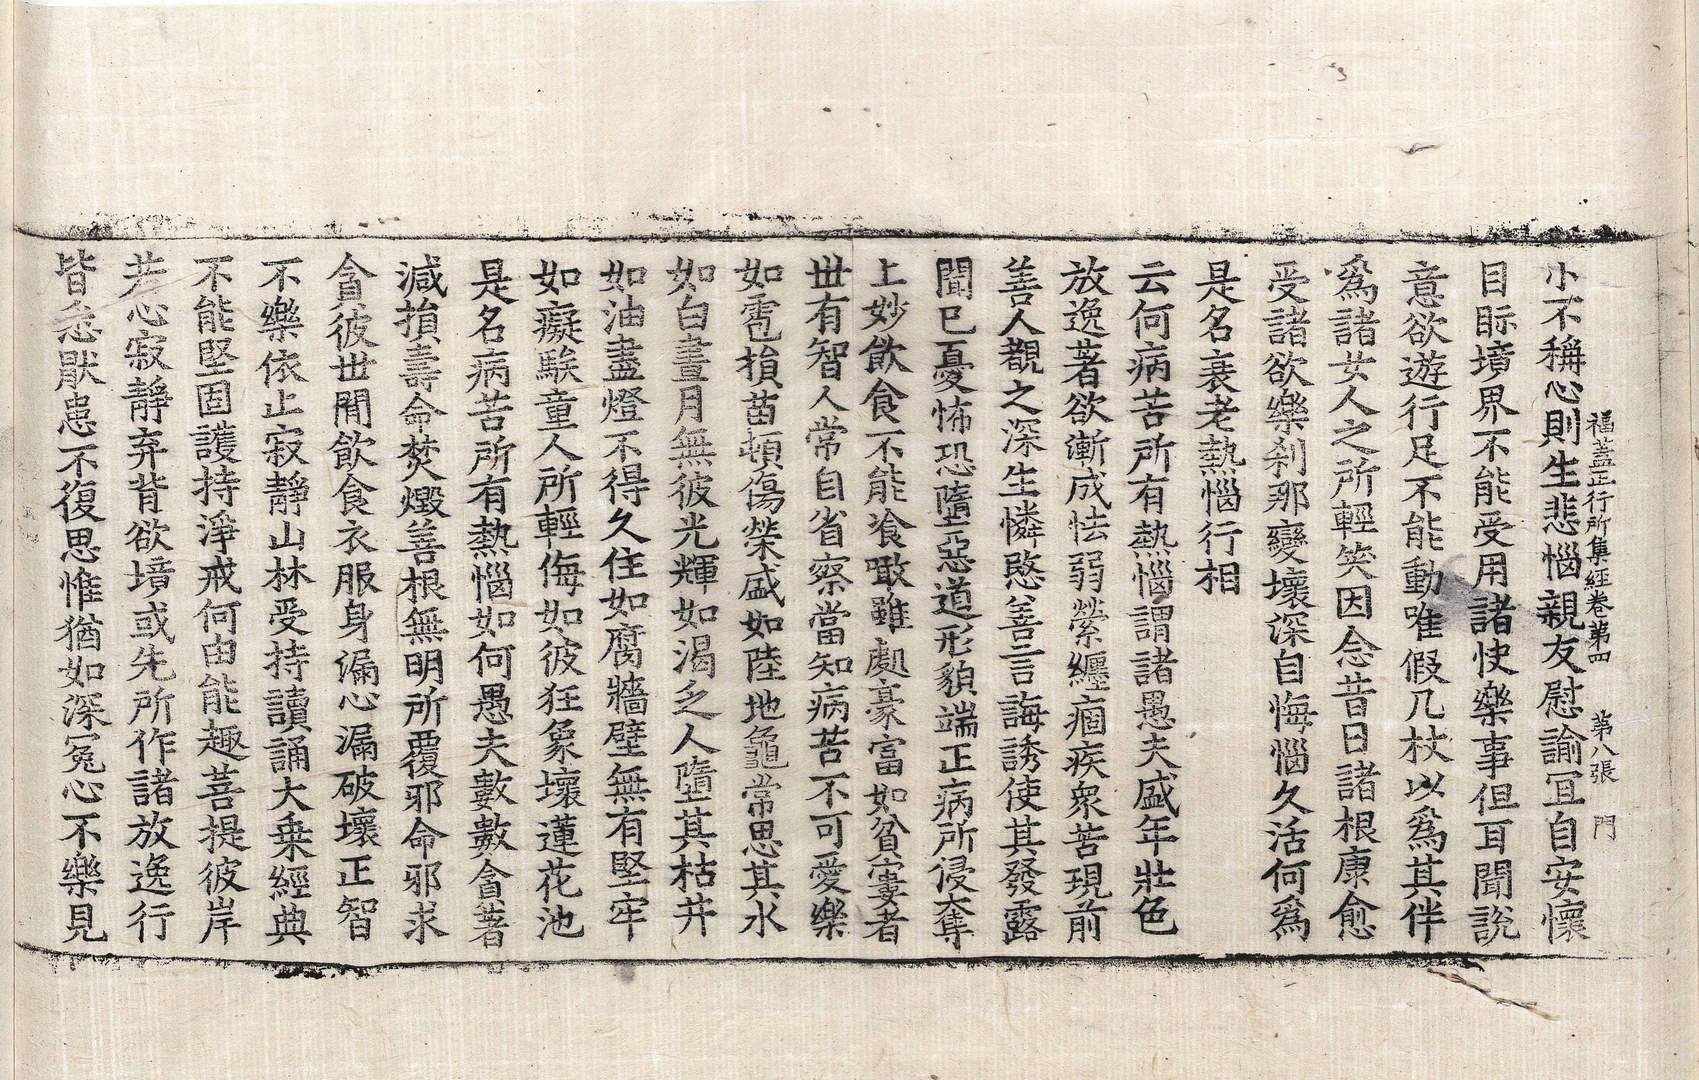 福蓋正行所集經卷第四　第八張　門
小不稱心則生悲惱親友慰諭冝自安懷
目眎境界不能受用諸快樂事但耳聞說
意欲遊行足不能動唯假几杖以爲其伴
爲諸女人之所輕笑因念昔日諸根康愈
受諸欲樂刹那變壞深自悔惱久活何爲
是名衰老熱惱行相
云何病苦所有熱惱謂諸愚夫盛年壯色
放逸著欲漸成怯弱縈纏痼疾衆苦現前
善人觀之深生憐愍善言誨誘使其發露
聞已憂怖恐墮惡道形貌端正病所侵奪
上妙飮食不能飡噉雖處豪富如貧窶者
世有智人常自省察當知病苦不可愛樂
如雹損苗頓傷榮盛如陸地龜常思其水
如白晝月無彼光輝如渴乏人墮其枯井
如油盡燈不得久住如腐牆壁無有堅牢
如癡騃童人所輕侮如彼狂象壞蓮花池
是名病苦所有熱惱如何愚夫數數貪著
減損壽命焚燬善根無明所覆邪命邪求
貪彼世閒飮食衣服身漏心漏破壞正智
不樂依止寂靜山林受持讀誦大乗經典
不能堅固護持淨戒何由能趣菩提彼岸
若心寂靜弃背欲境或先所作諸放逸行
皆悉猒患不復思惟猶如深冤心不樂見